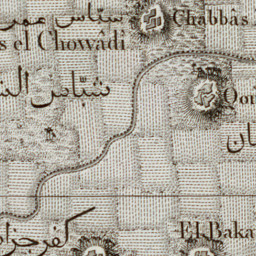 شبّاس عمر
Chabbâs
s el Chowâdi
شبّاس الش
Qou
ان
كفر جزا
El Baka